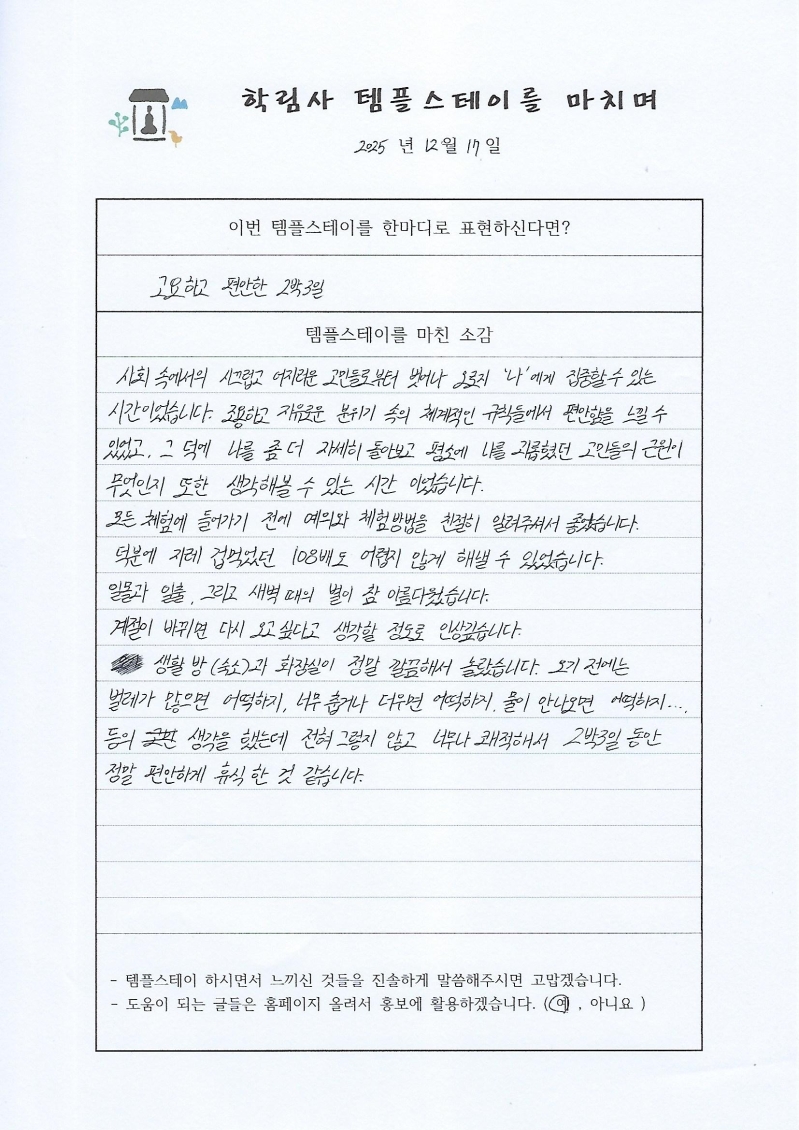 학림사 템플스테이를 마치며
2025 년 12월 17일
이번 템플스테이를 한마디로 표현하신다면?
고요하고 편안한 2박3일
템플스테이를 마친 소감
사회 속에서의 시끄럽고 어지러운 고민들로부터 벗어나 오로지 '나'에게 집중할 수 있는
시간이었습니다. 조용하고 자유로운 분위기 속의 체계적인 규칙들에서 편안함을 느낄 수
있었고, 그 덕에 나를 좀 더 자세히 돌아보고 평소에 나를 괴롭혔던 고민들의 근원이
무엇인지 또한 생각해볼 수 있는 시간 이었습니다.
모든 체험에 들어가기 전에 예의와 체험방법을 친절히 알려주셔서 좋았습니다.
덕분에 지레 겁먹었던 108배도 어렵지 않게 해낼 수 있었습니다.
일몰과 일출, 그리고 새벽 때의 별이 참 아름다웠습니다.
계절이 바뀌면 다시 오고싶다고 생각할 정도로 인상깊습니다.
생활 방(숙소)과 화장실이 정말 깔끔해서 놀랐습니다. 오기 전에는
벌레가 많으면 어떡하지, 너무 춥거나 더우면 어떡하지, 물이 안나오면 어떡하지...,
등의 생각을 했는데 전혀 그렇지 않고 너무나 쾌적해서 2박3일 동안
정말 편안하게 휴식 한 것 같습니다.
- 템플스테이 하시면서 느끼신 것들을 진솔하게 말씀해주시면 고맙겠습니다.
- 도움이 되는 글들은 홈페이지 올려서 홍보에 활용하겠습니다. (예 , 아니요 )